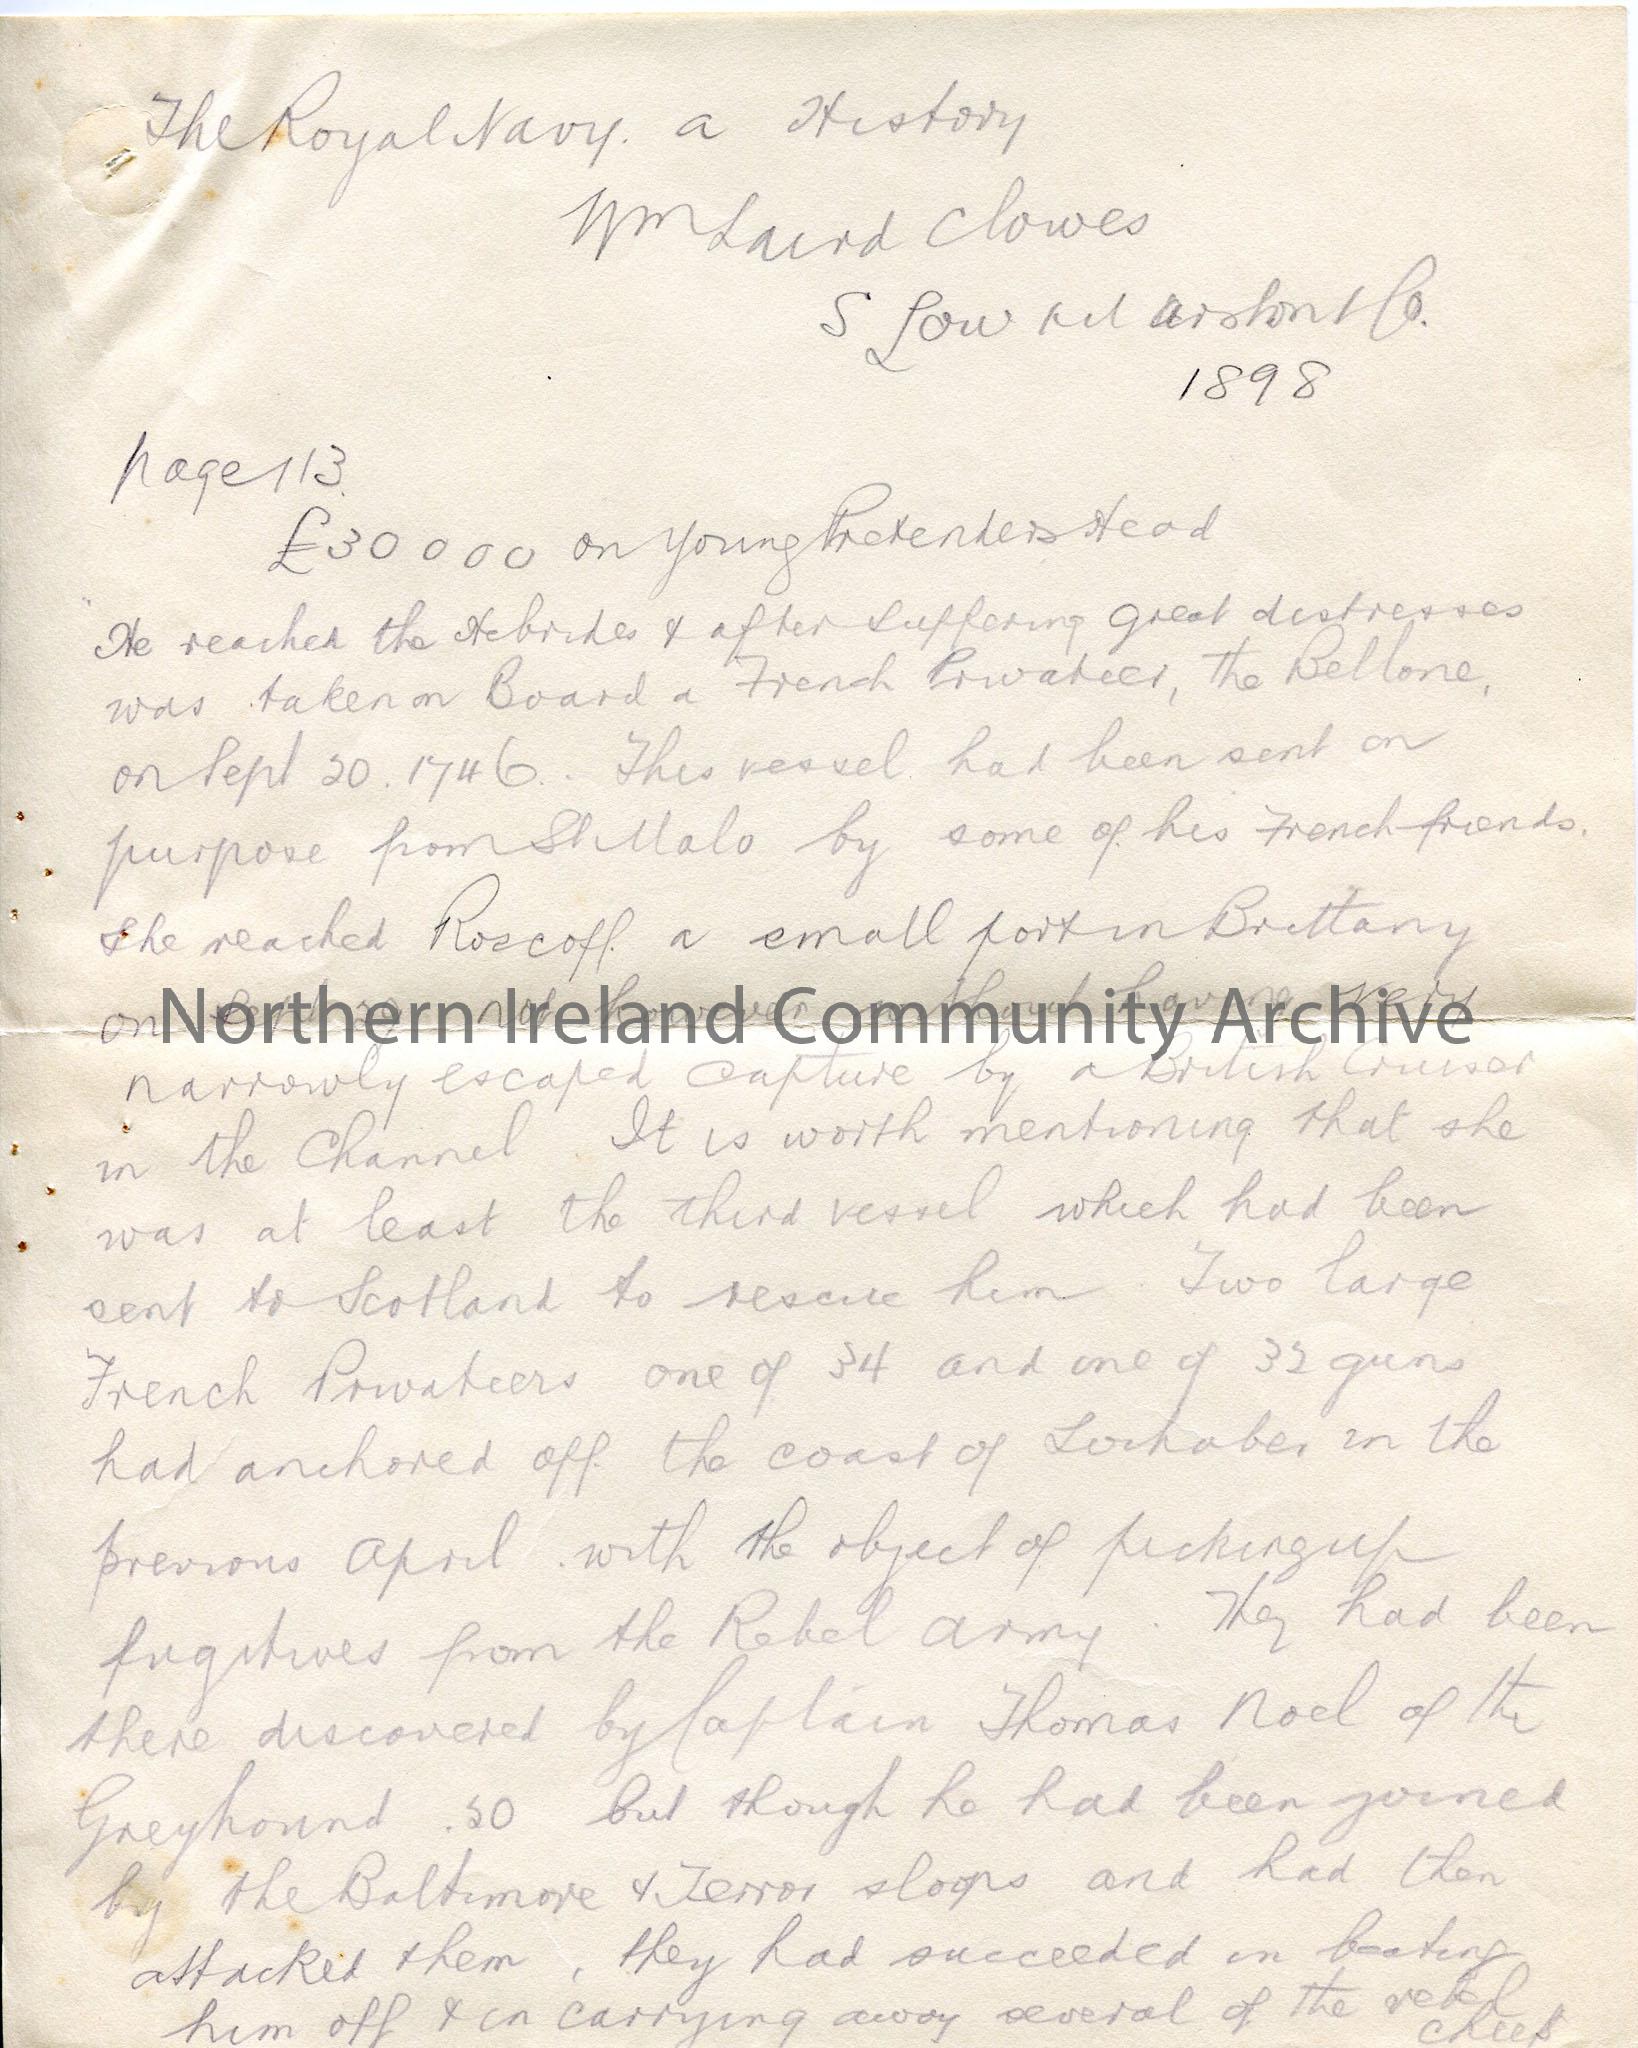 The Royal Navy. a History
Wm Laird Clowes
S Low Marston & Co.
1898
page 113.
£30000 on Young Pretenders Head
"He reached the Hebrides & after suffering great distresses
was taken on Board a French Privateer, the Bellone,
on Sept 20. 1746. This vessel had been sent on
purpose from St Malo by some of his French friends.
She reached Roscoff. a small port in Brittany
on however without having very
Northern Ireland Community Archive
narrowly escaped capture by a British Cruiser
in the Channel. It is worth mentioning that she
was at least the third vessel which had been
sent to Scotland to rescue him. Two large
French Privateers one of 34 and one of 32 guns
had anchored off the coast of Lochaber in the
previous April. with the object of picking up
fugitives from the Rebel army. They had been
there discovered by Captain Thomas Noel of the
Greyhound. 20 but though he had been joined
by the Baltimore & Terror sloops and had then
attacked them, they had succeeded in beating
him off & in carrying away several of the rebel
chiefs